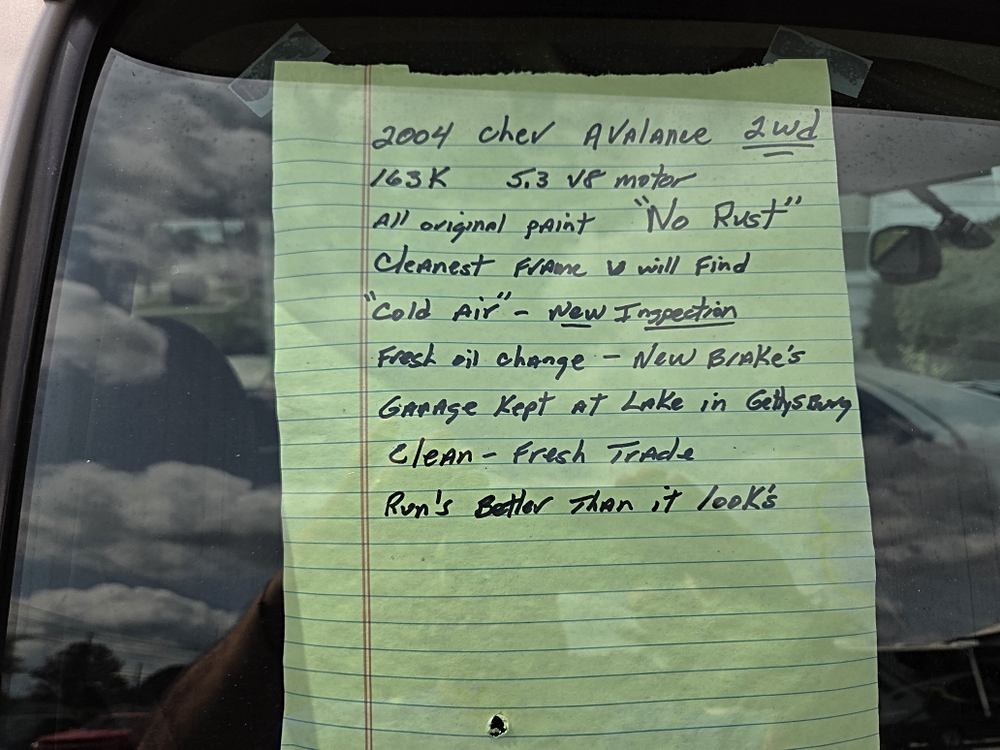 2004 Chev AVAlANCE 2wd
163K 5.3 V8 motor
All original pAint "No Rust"
CleAnest FrAme U will Find
"Cold Air" - New Inspection
Fresh oil change - New BrAKe's
GArAge Kept At LAKe in GettysBurg
CleAn - Fresh TrAde
Run's Better Than it looK's